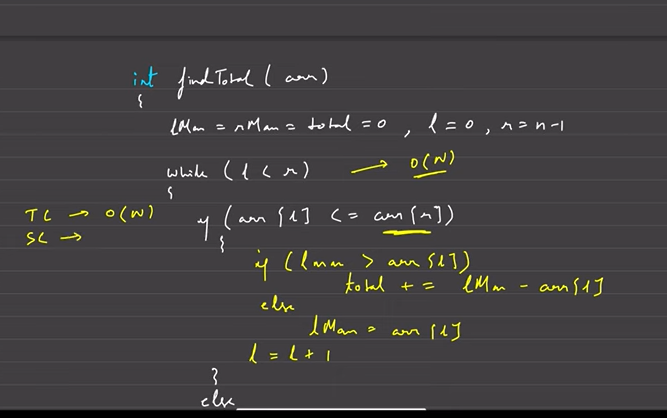 int findTotal ( arr)
{
lMax = rMax = total = 0 , l = 0 , r = n-1
while ( l < r) → O(N)
{
TC → O(N)
if (arr [l] <= arr[r])
SC →
{
if (lmax > arr[l])
total += lMax - arr[l]
else
lMax = arr[l]
l = l + 1
}
else